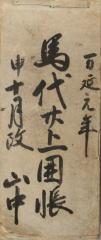 百延元年
馬代大上囲帳
申十月改
山中